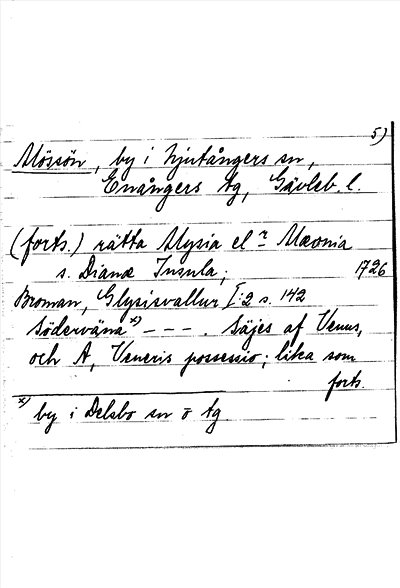 5)
Mössön, by i Njutångers sn,
Enångers tg, Gävleb. l.
(forts.) rätta Mysia el r Mæonia
s. Dianæ Insula; 1726
Broman, Glysisvallur I:2 s. 142
Söderväna x) – – – . Säjes af Venus,
och A, Veneris possessio; lika som
forts.
x) by i Delsbo sn o tg